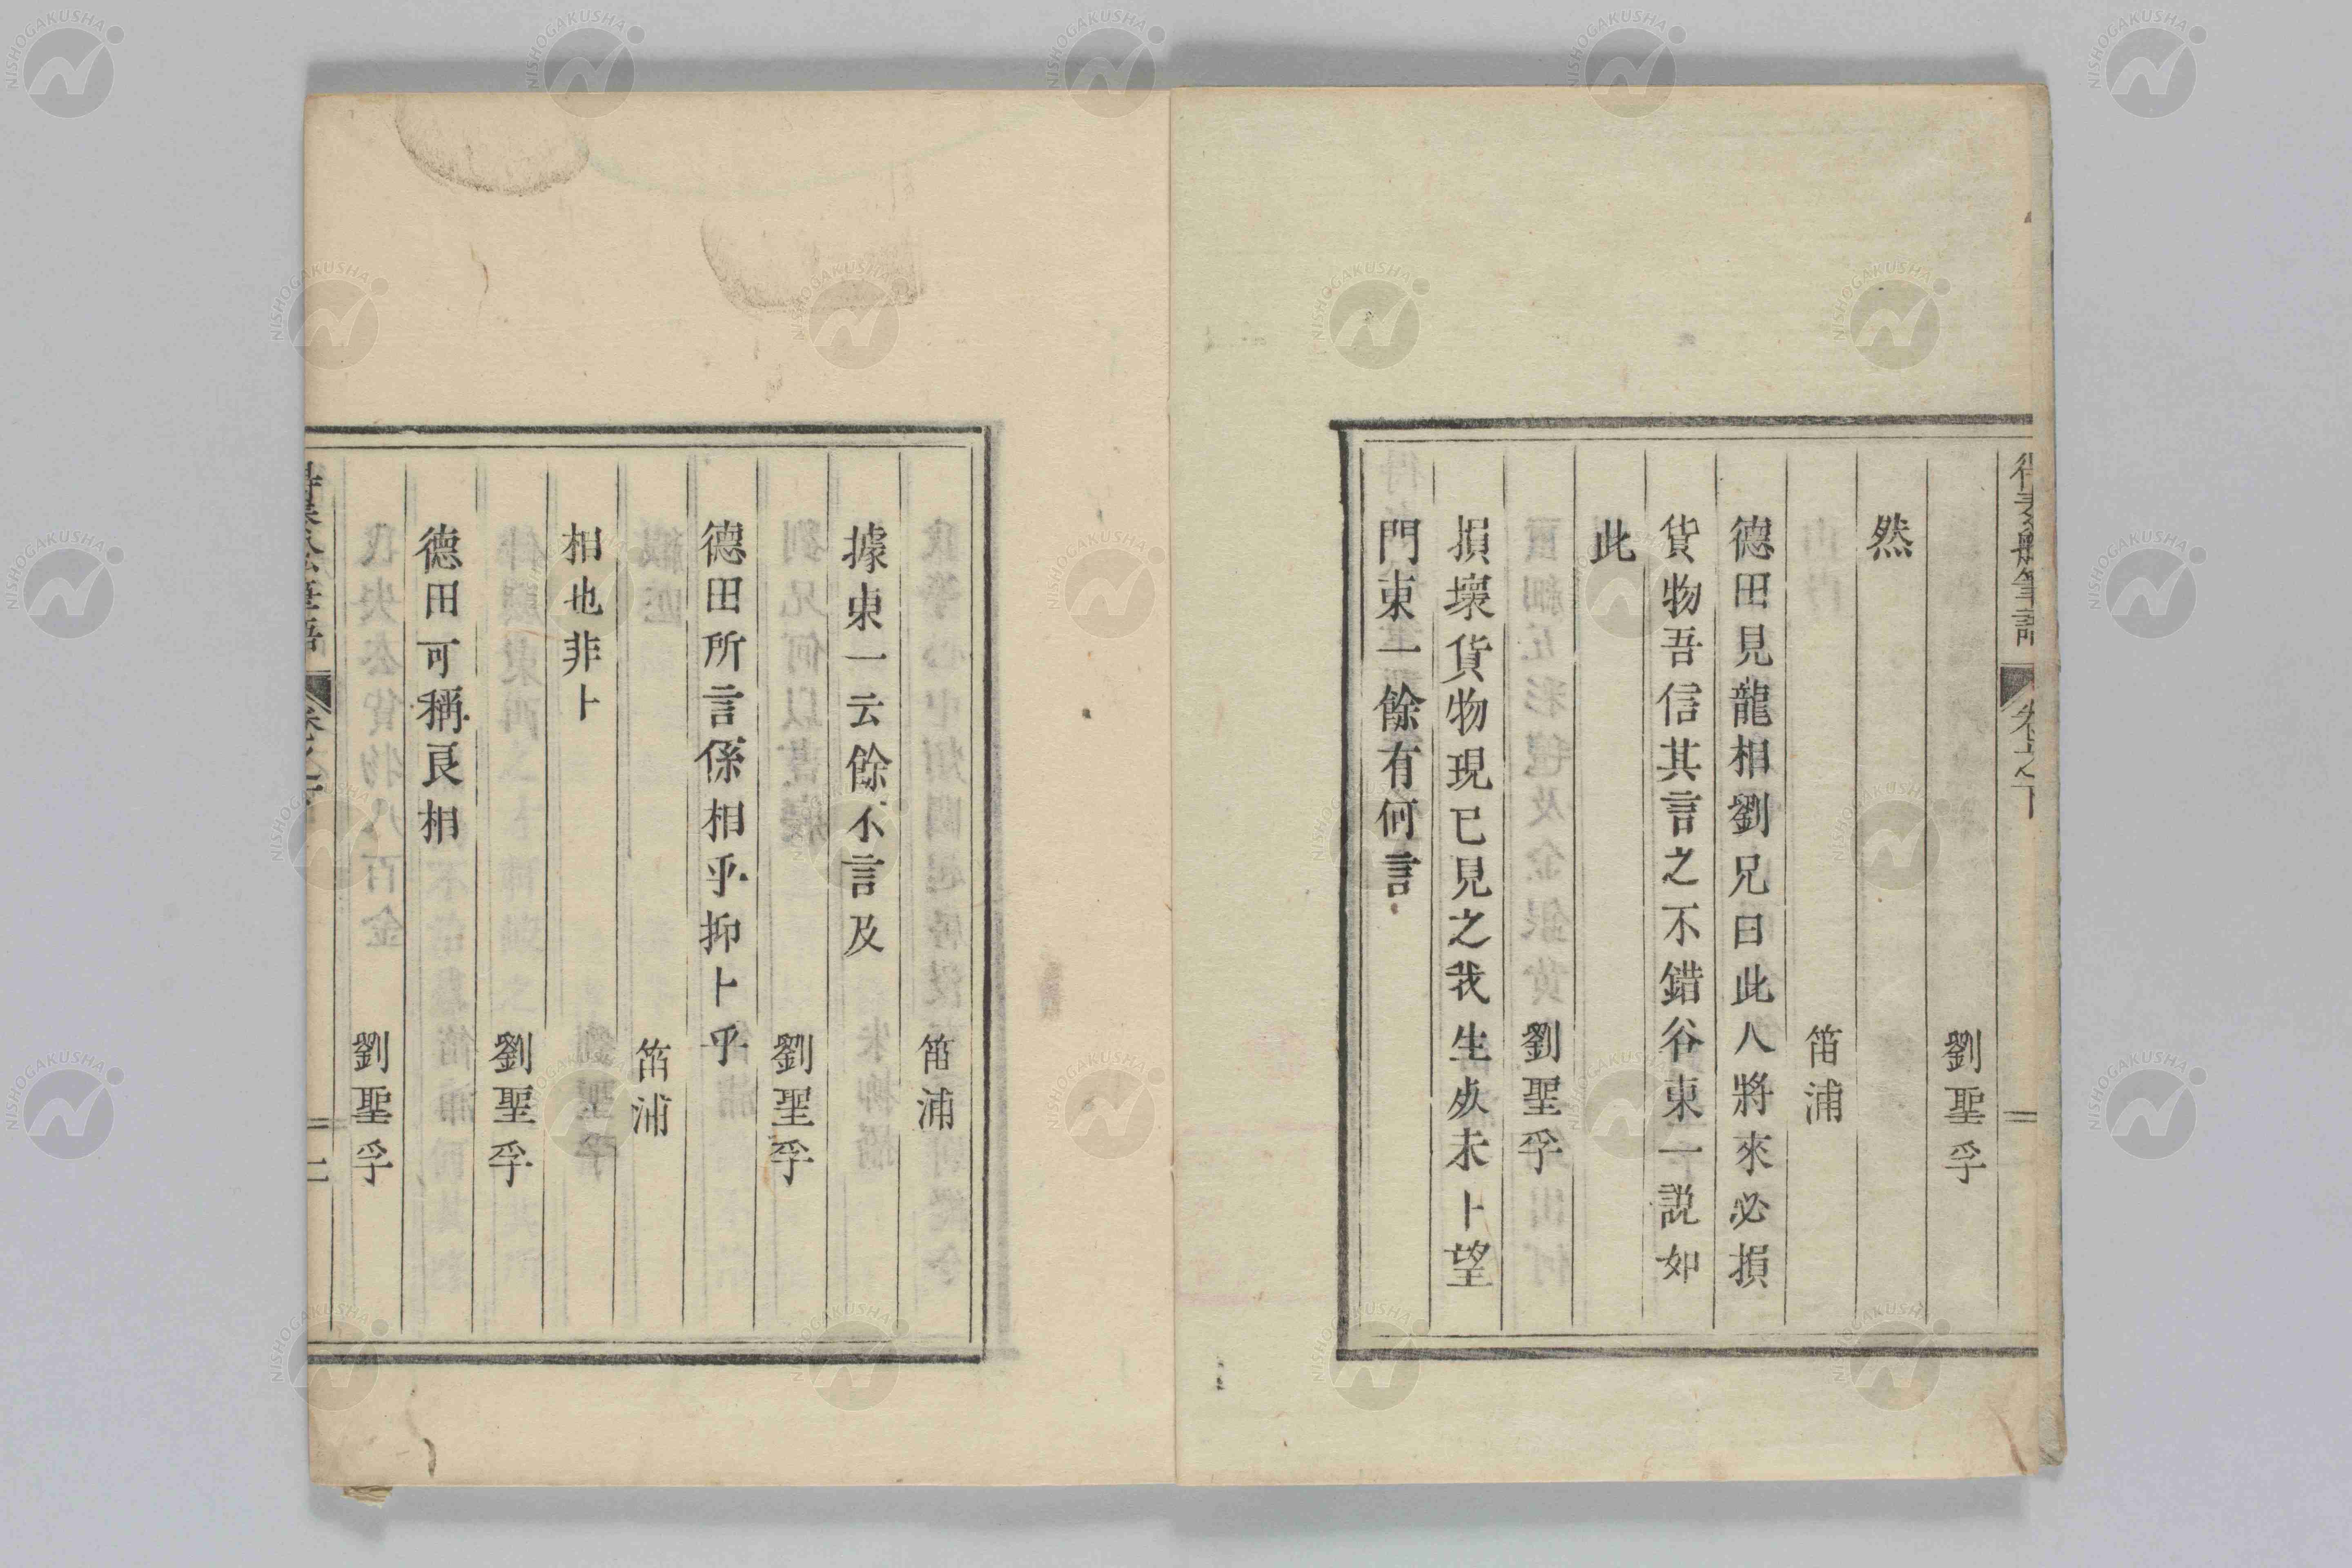 得泰船筆語
卷之下
二
劉聖孚
然
笛浦
德田見龍相劉兄曰此人將來必損
貨物吾信其言之不錯谷東一説如
此
劉聖孚
損壞貨物現已見之我生𡚒未卜望
門東一餘有何言
笛浦
據東一云餘不言及
劉聖孚
德田所言係相乎抑卜乎
笛浦
相也非卜
劉聖孚
德田可稱良相
劉聖孚
NISHOGAKUSHA